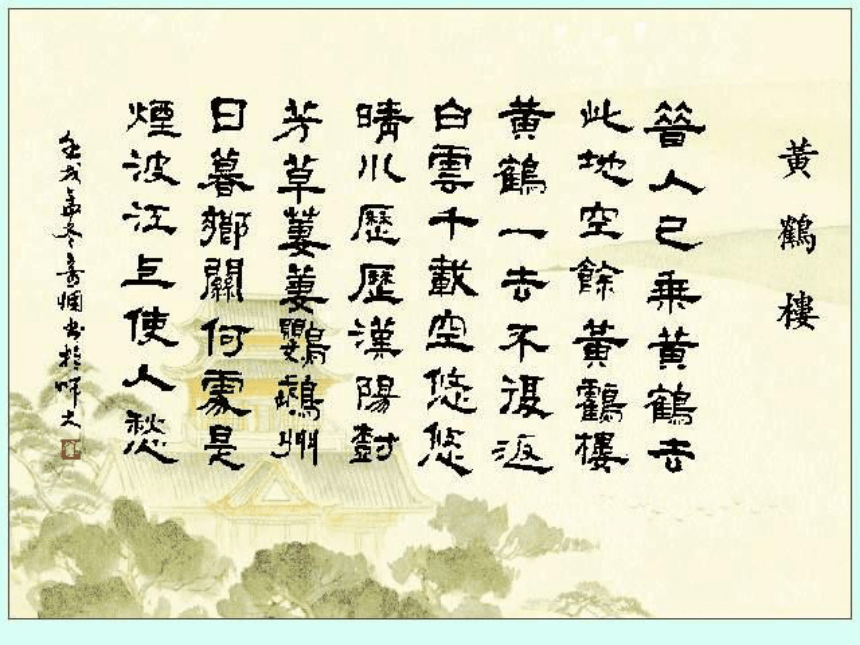 黃鶴樓
昔人已乘黄鶴去
此地空餘黄鶴樓
黄鶴一去不復返
白雲千載空悠悠
晴川歷歷漢陽樹
芳草萋萋鸚鵡州
日暮鄉關何處是
煙波江上使人愁
壬戌孟冬書於師大